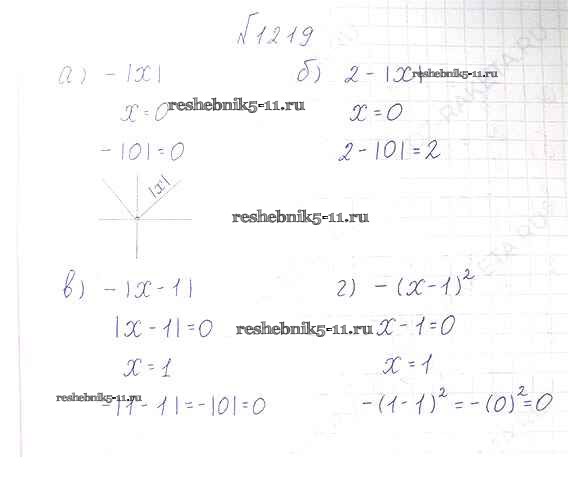 №1219
а) -|x|
x=0
-|0|=0
|x|
б) 2-|x|
x=0
2-|0|=2
в) -|x-1|
|x-1|=0
x=1
-|1-1|=-|0|=0
г) -(x-1)²
x-1=0
x=1
-(1-1)²=-(0)²=0
reshebnik5-11.ru
reshebnik5-11.ru
reshebnik5-11.ru
reshebnik5-11.ru
reshebnik5-11.ru
RAKETA.RU